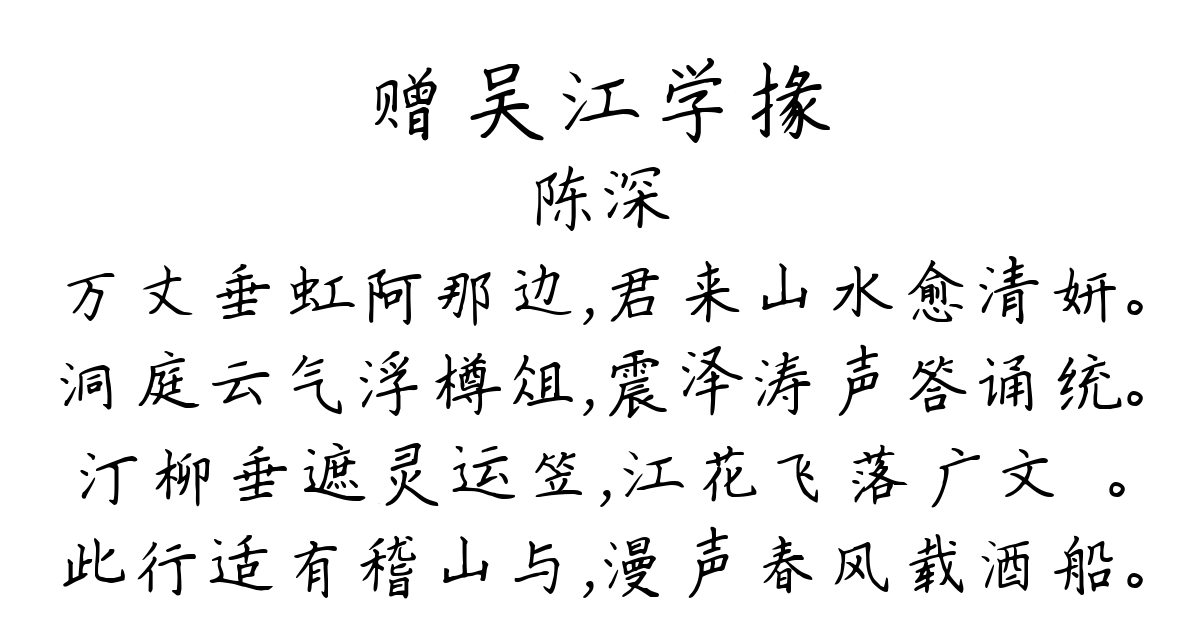 赠吴江学掾
陈深
万丈垂虹阿那边,君来山水愈清妍。
洞庭云气浮樽俎,震泽涛声答诵统。
汀柳垂遮灵运笠,江花飞落广文 。
此行适有稽山与,漫声春风载酒船。